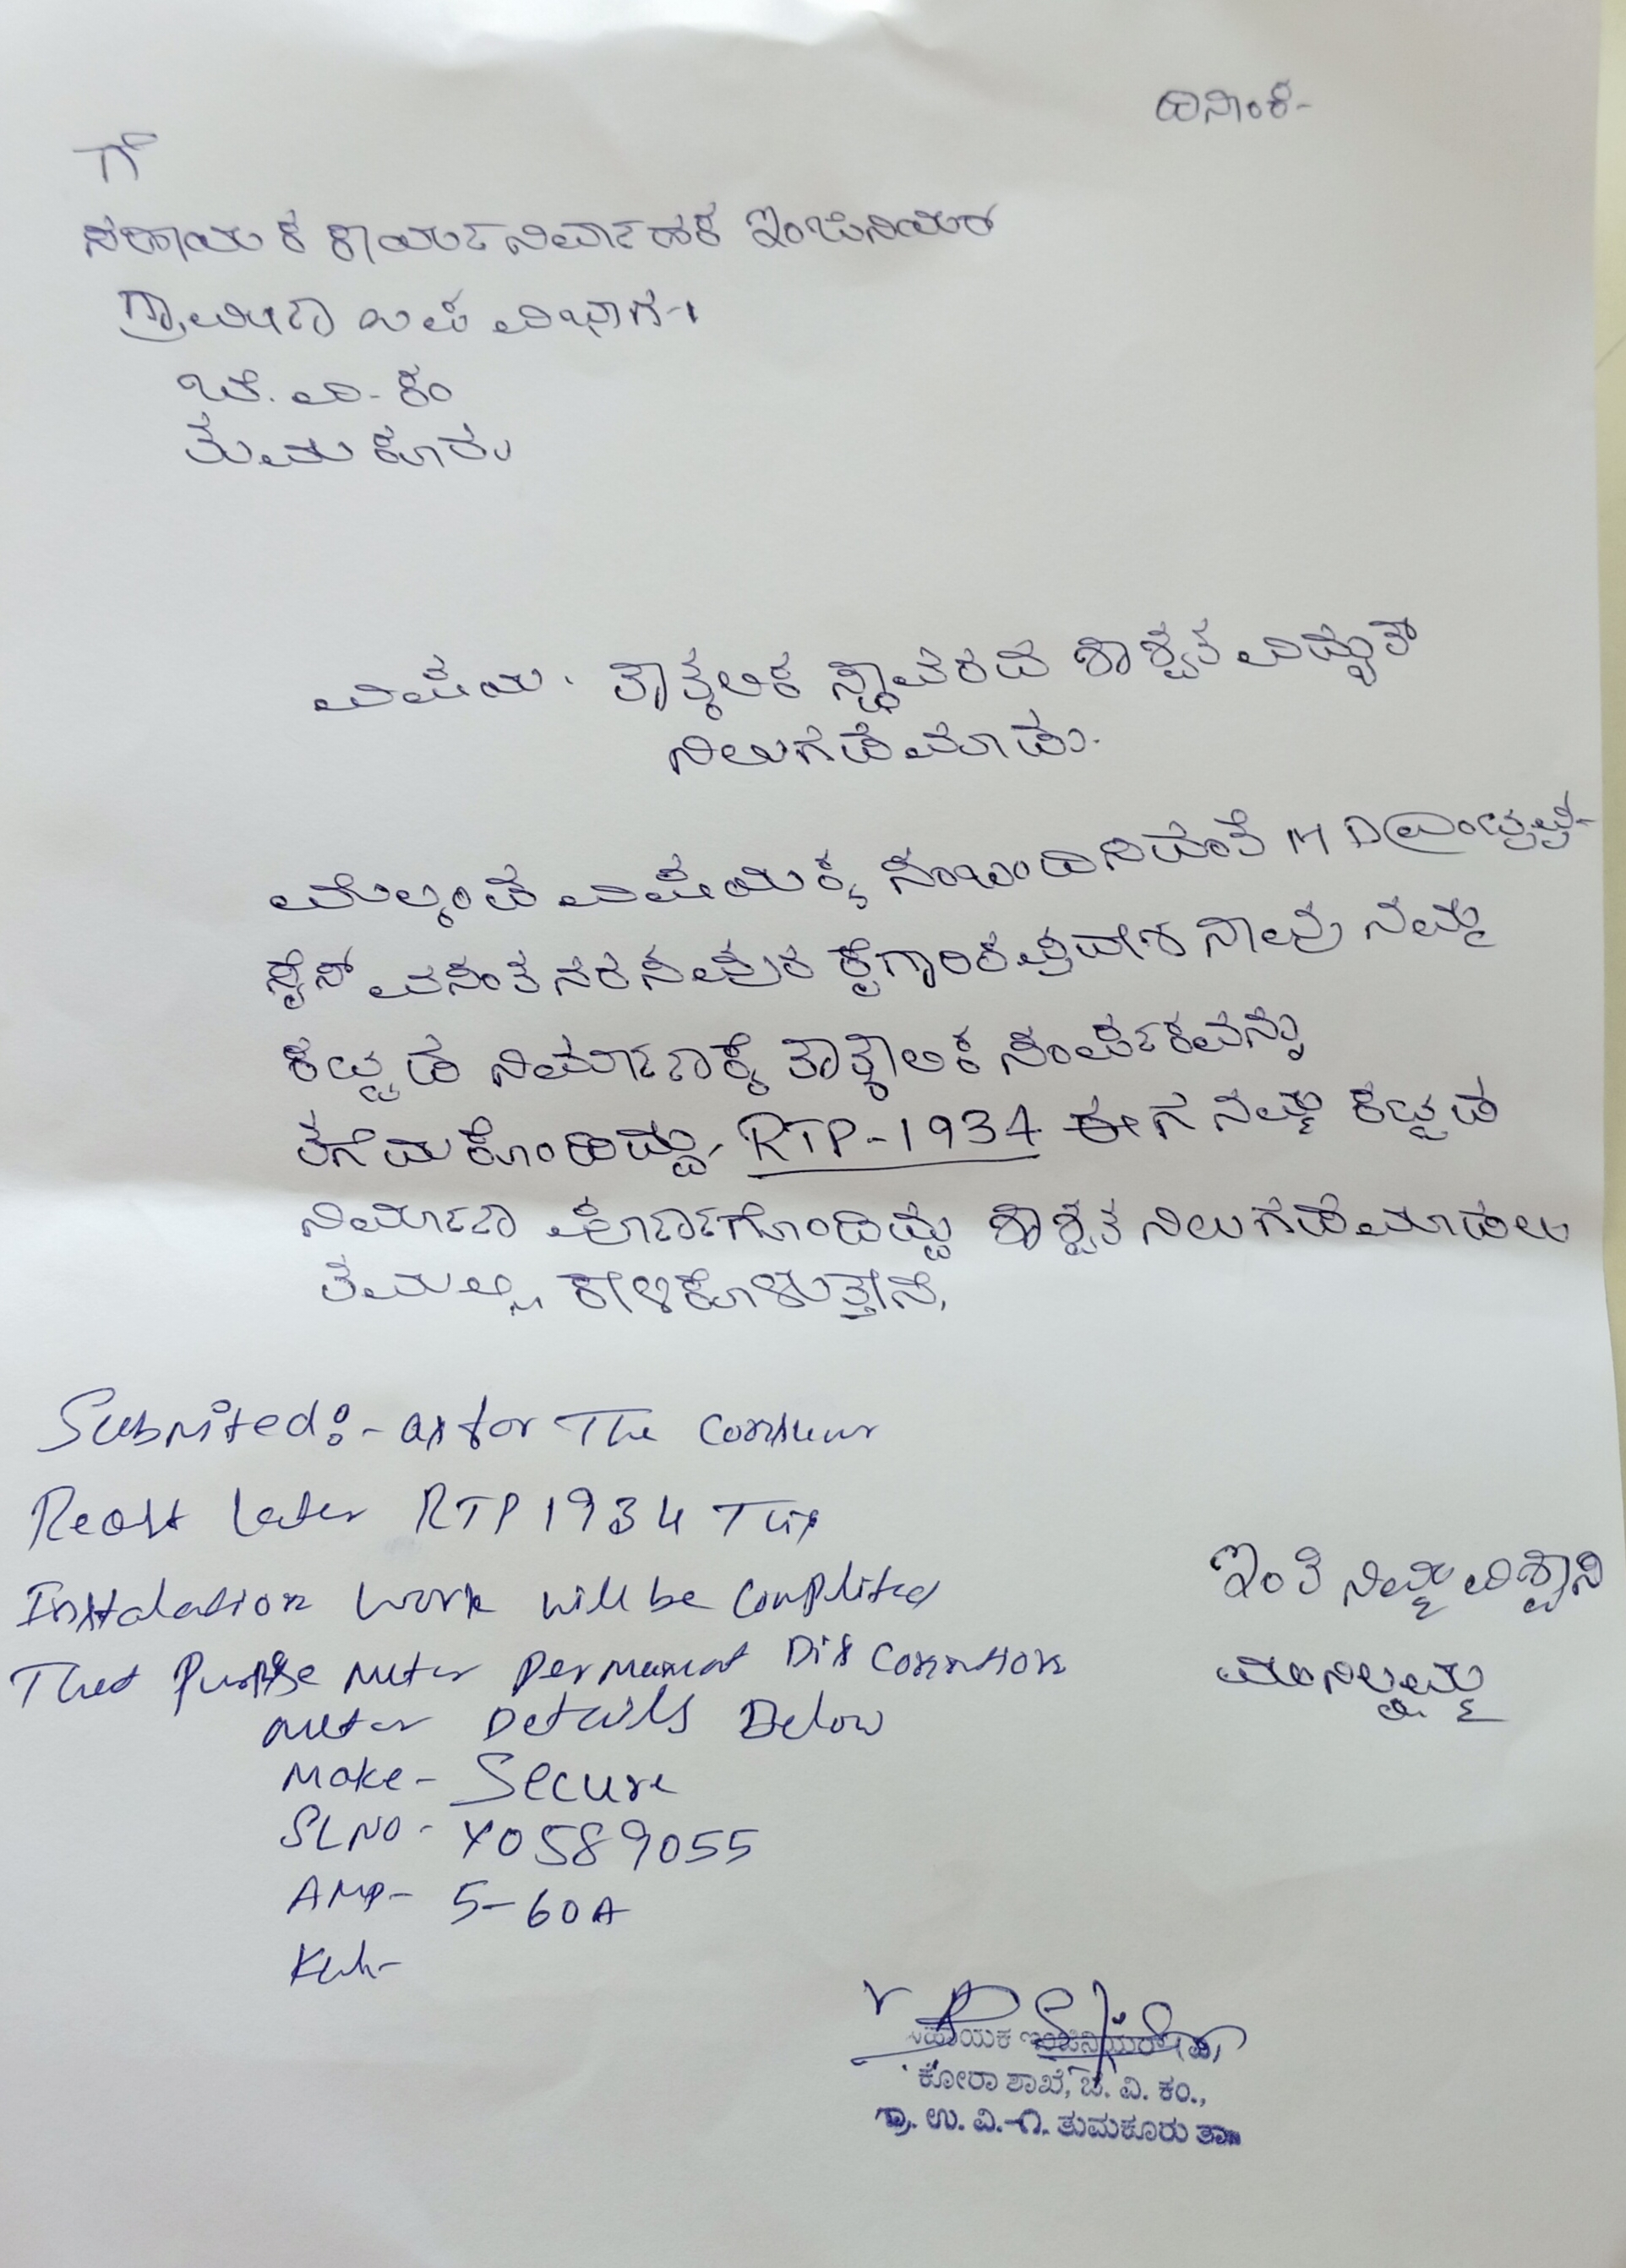 ದಿನಾಂಕ-
ಗೆ
ಸಹಾಯಕ ಕಾರ್ಯನಿರ್ವಾಹಕ ಇಂಜಿನಿಯರ್
ಗ್ರಾಮೀಣ ಉಪ ವಿಭಾಗ-1
ಬೆ. ವಿ. ಕಂ
ತುಮಕೂರು
ವಿಷಯ. ತಾತ್ಕಲಿಕ ಸ್ಥಾವರದ ಶಾಶ್ವತ ವಿದ್ಯುತ್
ನಿಲುಗಡೆ ಮಾಡು.
ಮೇಲ್ಕಂಡ ವಿಷಯಕ್ಕೆ ಸಂಬಂದಿಸಿದಂತೆ M D
ವಸಂತನರಸಾಪುರ ಕೈಗಾರಿಕಪ್ರದೇಶ ನಾವು ನಮ್ಮ
ಕಟ್ಟಡ ನಿರ್ಮಾಣಕ್ಕೆ ತಾತ್ಕಾಲಿಕ ಸಂರ್ಪಕವನ್ನು
ತೆಗೆದುಕೊಂಡಿದ್ದು, RTP-1934 ಈಗ ನಮ್ಮ ಕಟ್ಟಡ
ನಿರ್ಮಾಣ ಪೂರ್ಣಗೊಂಡಿದ್ದು ಶಾಶ್ವತ ನಿಲುಗಡೆಮಾಡಲು
ತಮಲ್ಲಿ ಕೇಳಿಕೊಳುತ್ತೇನೆ.
Submited:- as for The
Later RTP 1934 This
Instalation Work will be Complited
That Purpose meter permanent Dis Connection
meter Details Below
Make- Secure
SLNO- Y0589055
AMP- 5-60A
Kwh-
ಇಂತಿ ನಿಮ್ಮ ವಿಶ್ವಾಸಿ
ಸಹಾಯಕ ಇಂಜಿನಿಯರ್ (ವಿ)
ಕೋರಾ ಶಾಖೆ, ಬೆ. ವಿ. ಕಂ.,
ಗ್ರಾ. ಉ. ವಿ.-೧. ತುಮಕೂರು ತಾ||